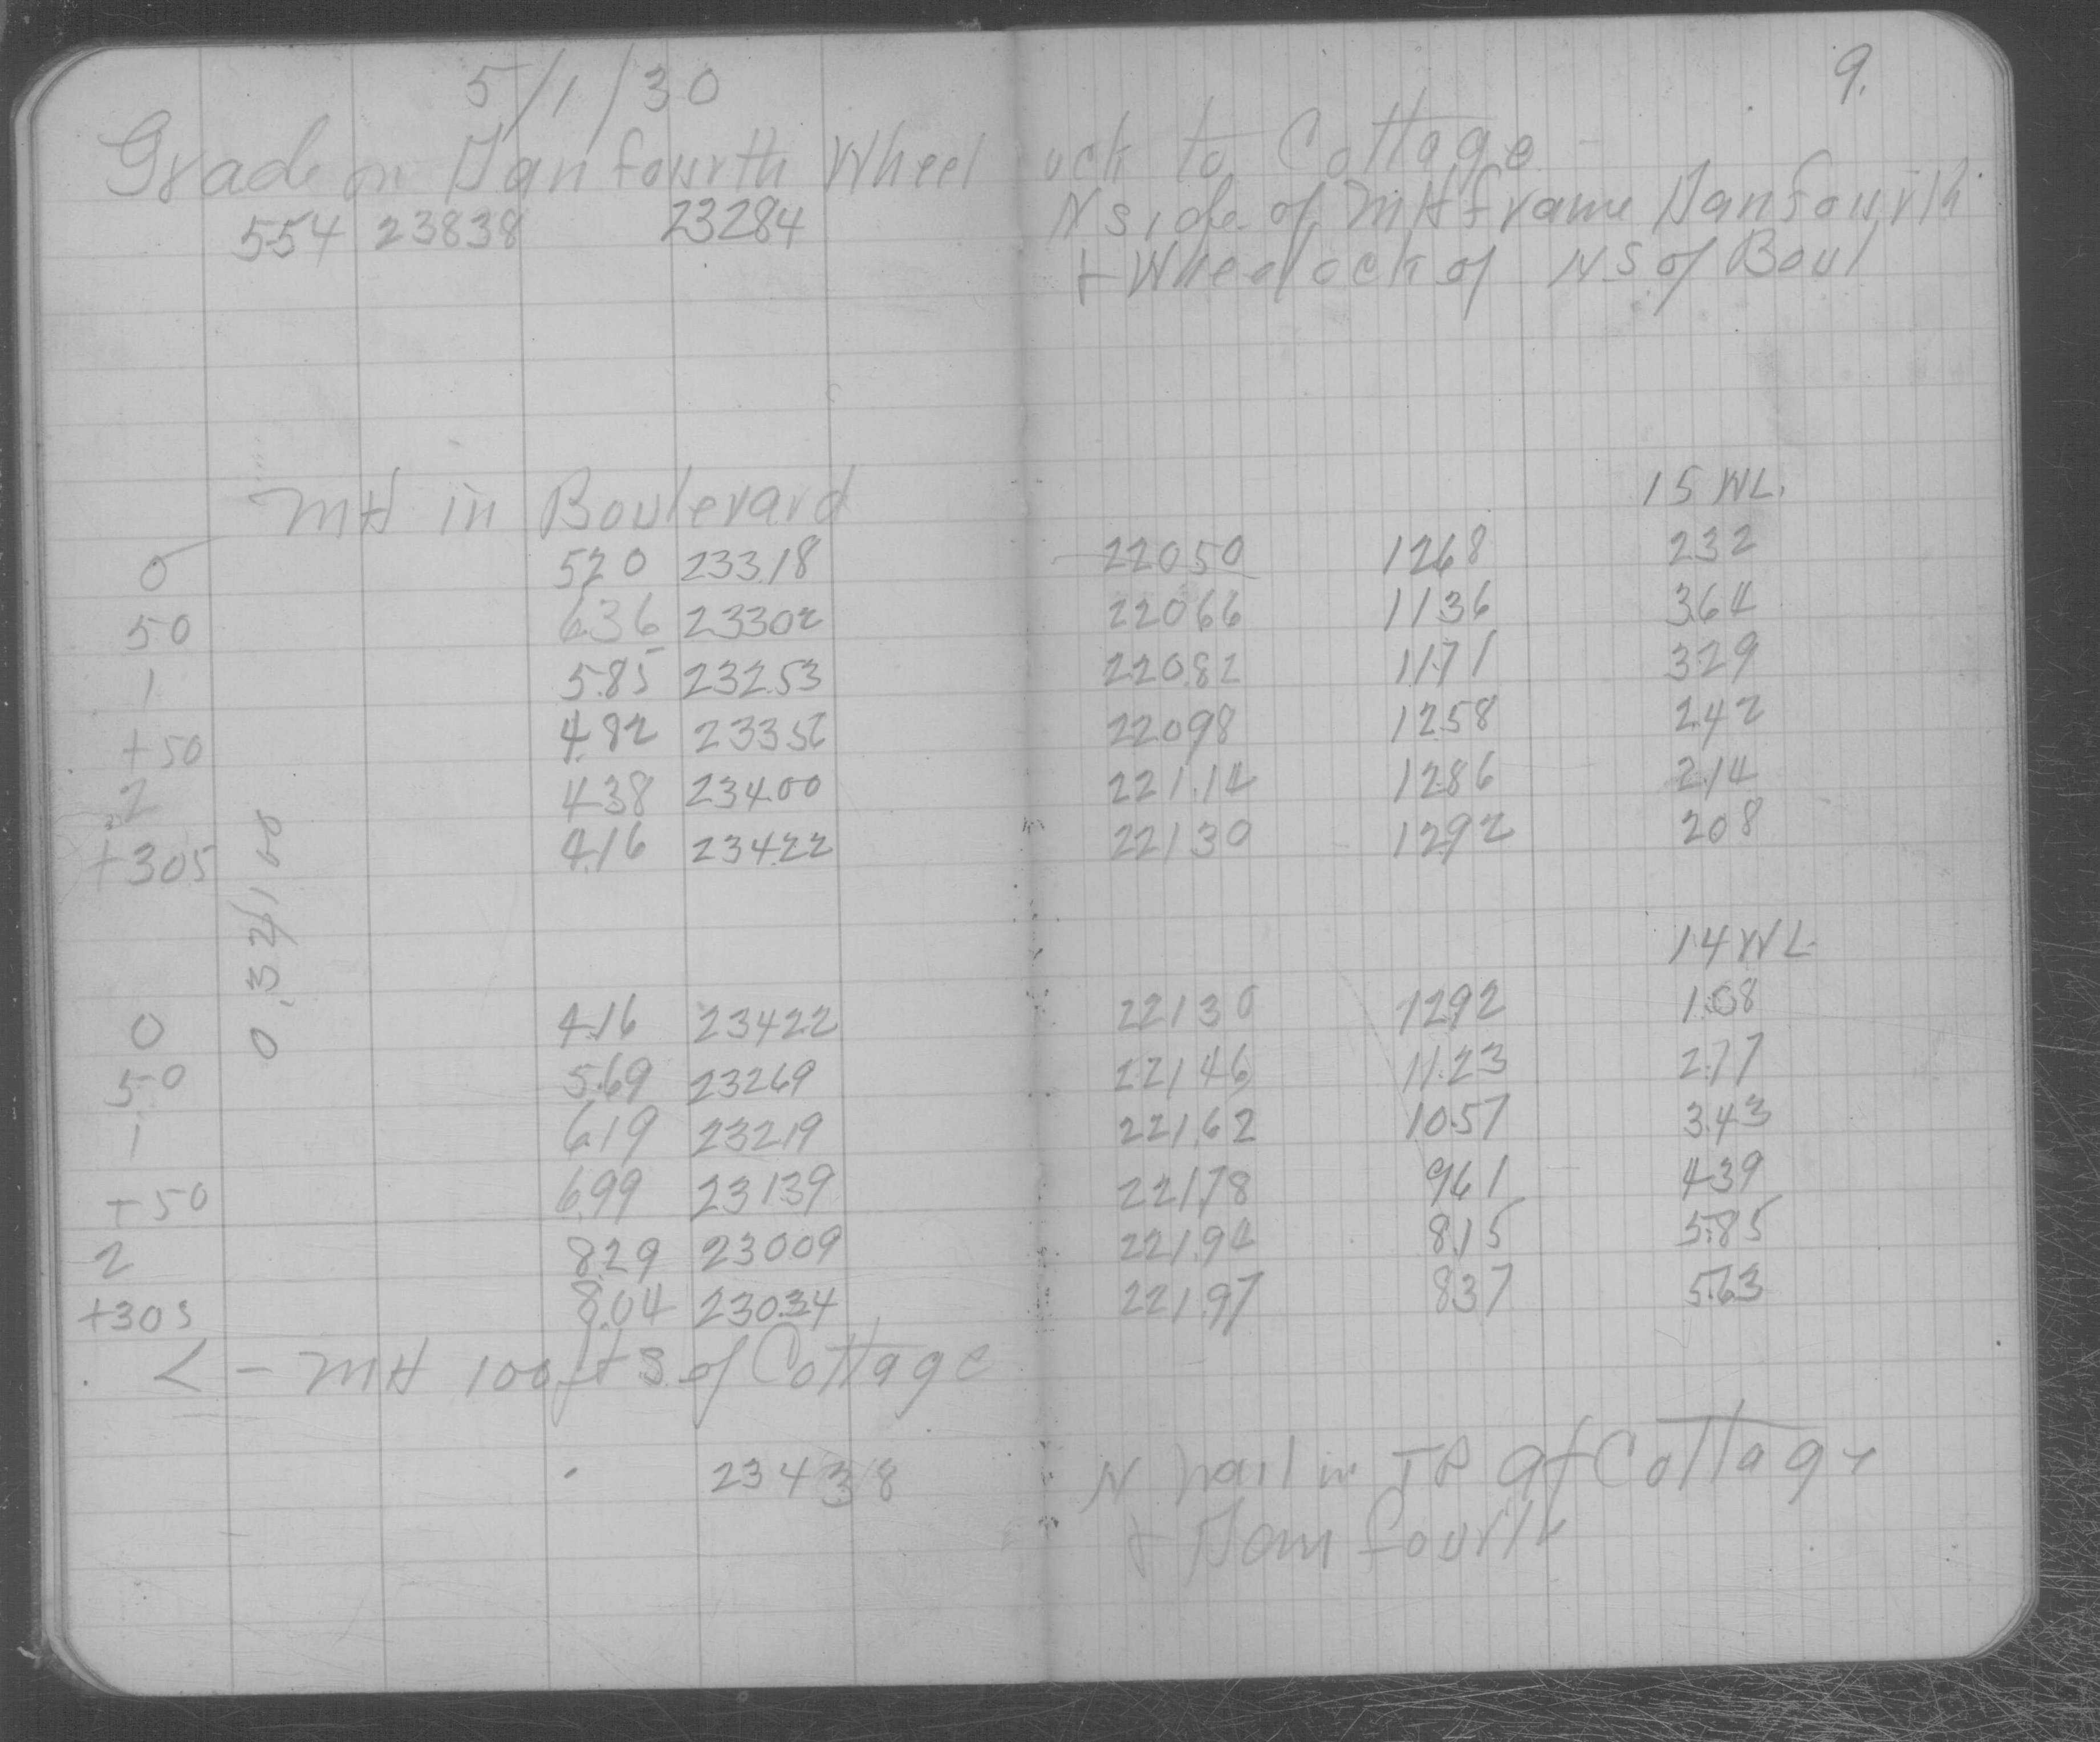 5/1/30
9.
Grade on Danfourth Wheelock to Cottage
554 23838 23284 N side of MH frame Danfourth
+ Wheelock of N S of Boul
MH in Boulevard 15 WL.
0 520 233.18 22050 1268 232
50 636 23302 22066 1136 364
1 5.85 232.53 22082 11.71 329
+50 4.82 23356 22098 1258 242
2 438 234.00 221.14 1286 2.14
+305 4.16 23422 22130 1292 208
0.32/100
14 WL
0 4.16 23422 22130 1292 1.08
50 5.69 23269 22146 11.23 277
1 619 23219 221.62 10.57 3.43
+50 6.99 23139 22178 961 439
2 829 23009 221.94 8.15 5.85
+305 8.04 230.34 221.97 837 5.63
< - MH 100 ft S of Cottage
23438 N nail in TP at Cottage
+ Danfourth